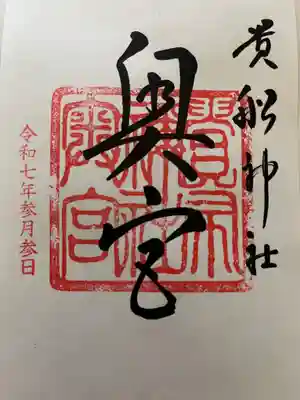 貴船神社
奥宮
貴船神社奥宮
令和七年参月参日